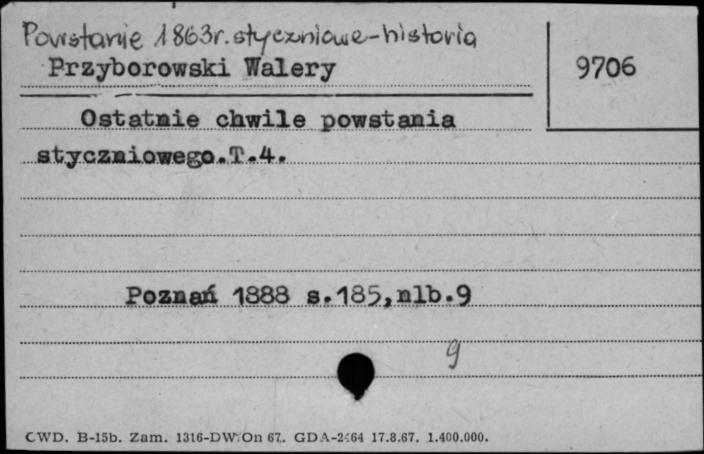 Powstanie 1863r. styczniowe-historia
Przyborowski Walery
9706
Ostatnie chwile powstania
styczniowego.T.4.
Poznań 1888 s.185,nlb.9
9
CWD. B-15b. Zam. 1316-DW/On 67. GDA-2464 17.8.67. 1.400.000.